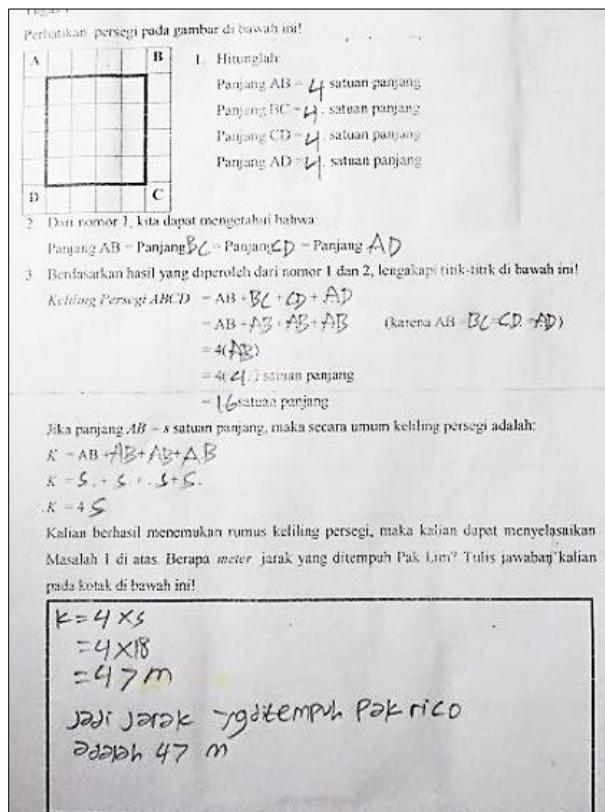 Perhatikan persegi pada gambar di bawah ini!
A B
D C
1. Hitunglah:
Panjang AB = 4 satuan panjang
Panjang BC = 4. satuan panjang
Panjang CD = 4. satuan panjang
Panjang AD = 4. satuan panjang
2. Dari nomor 1, kita dapat mengetahui bahwa
Panjang AB = Panjang BC = Panjang CD = Panjang AD
3. Berdasarkan hasil yang diperoleh dari nomor 1 dan 2, lengakapi titik-titik di bawah ini!
Keliling Persegi ABCD = AB + BC + CD + AD
= AB + AB + AB + AB (karena AB = BC = CD = AD)
= 4(AB)
= 4(4.) satuan panjang
= 16 satuan panjang
Jika panjang AB = s satuan panjang, maka secara umum keliling persegi adalah:
K = AB + AB + AB + AB
K = S. + S. + .S + S.
K = 4 S
Kalian berhasil menemukan rumus keliling persegi, maka kalian dapat menyelasaikan
Masalah 1 di atas. Berapa meter jarak yang ditempuh Pak Lim? Tulis jawaban kalian
pada kotak di bawah ini!
K = 4 x s
= 4 x 18
= 47 m
Jadi Jarak yg ditempuh Pak rico
adalah 47 m